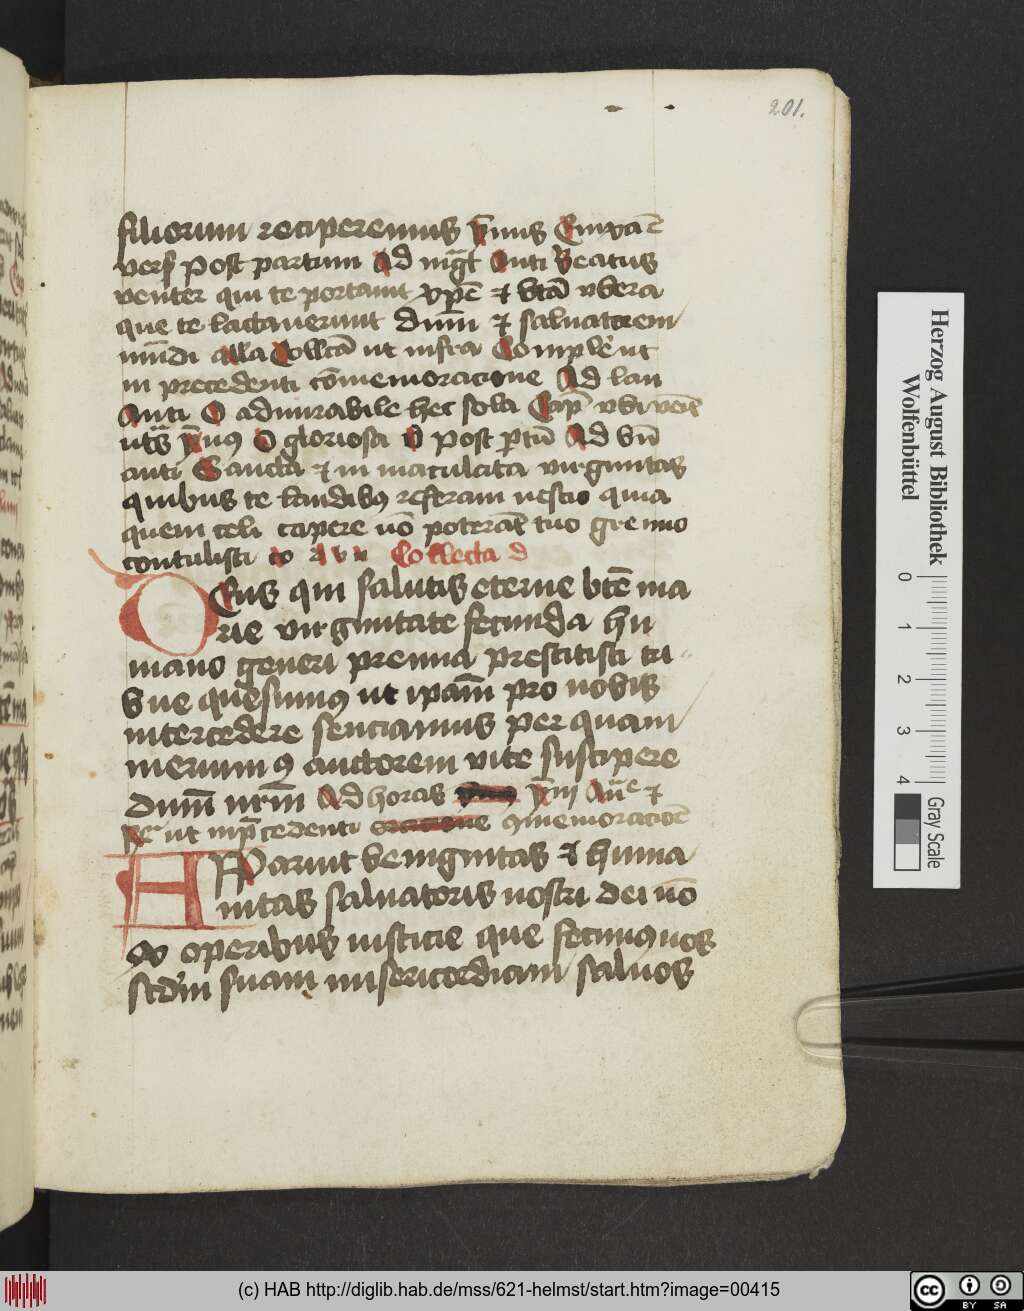 201.
filiorum reciperemus ym̄us Enixa ē
vers Post partum Ad mg̅t Anti Beatus
venter qui te portauit xp̄e ⁊ bt̄a vbera
que te lactauerunt dnm̄ ⁊ saluatorem
mu̅di alla Collcā ut infra Comple ut
in precedenti co̅memoracione Ad lau
Anti O admirabile hec sola Cap̄
ut s̄ ym̄nꝯ O gloriosa O Post p̄tū Ad bn̄
anti Sancta ⁊ in maculata virginitas
quibus te laudibꝯ referam nescio quia
quem celi capere nō poterāt tuo gremio
contulisti Collecta d
DEus qui salutis eterne btē ma
rie virginitate fecunda hu
mano generi premia prestitisti tri
bue quesumꝯ ut ipam̄ pro nobis
intercedere senciamus per quam
meruimꝯ auctorem vite suscipere
dnm̄ nrm̄ Ad horas ⁊
ut in p̄cedenti ꝯmemoracioē
APparuit benignitas ⁊ huma
nitas saluatoris nostri dei nō
ex operibus iusticie que fecimꝯ nos
scdm̄ suam misericordiam saluos
Herzog August Bibliothek
Wolfenbüttel
0 1 2 3 4
Gray Scale
(c) HAB http://diglib.hab.de/mss/621-helmst/start.htm?image=00415
cc BY SA